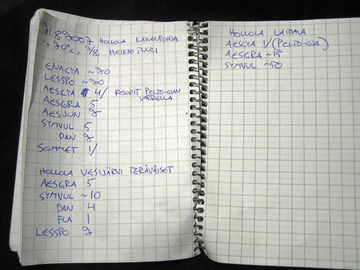 7.8.2007 HOLLOLA KAKARPOHJA
~20°C, 7/8, HEIKKO TUULI
ENACYA ~20
LESSPO ~20
AESCYA 4/ PELTO-OJAN
VARRELLA
AESGRA 5
AESJUN 2
SYMVUL 5
DAN 2
SOMMET 1/
HOLLOLA VESIJÄRVI TERÄVÄISET
AESGRA 5
SYMVUL ~10
DAN 4
FLA 1
LESSPO 2
HOLLOLA LAITIALA
AESCYA 1/(PELTO-OJA)
AESGRA ~15
SYMVUL ~50